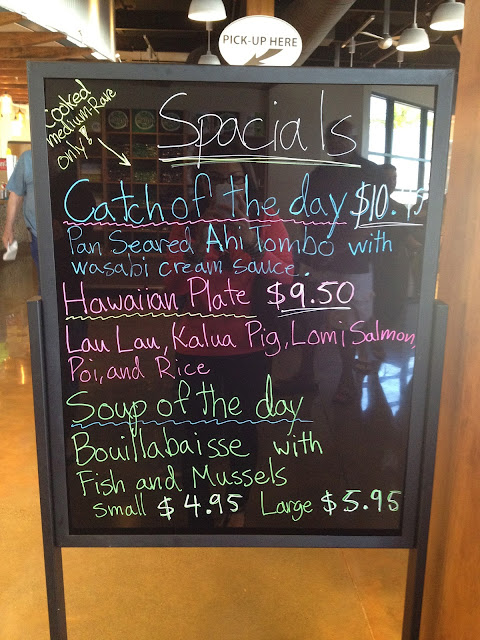 PICK-UP HERE
Cooked
medium-Rare
only!
Spacials
Catch of the day $10.95
Pan Seared Ahi Tombo with
wasabi cream sauce.
Hawaiian Plate $9.50
Lau Lau, Kalua Pig, Lomi Salmon,
Poi, and Rice
Soup of the day
Bouillabaisse with
Fish and Mussels
Small $4.95 Large $5.95